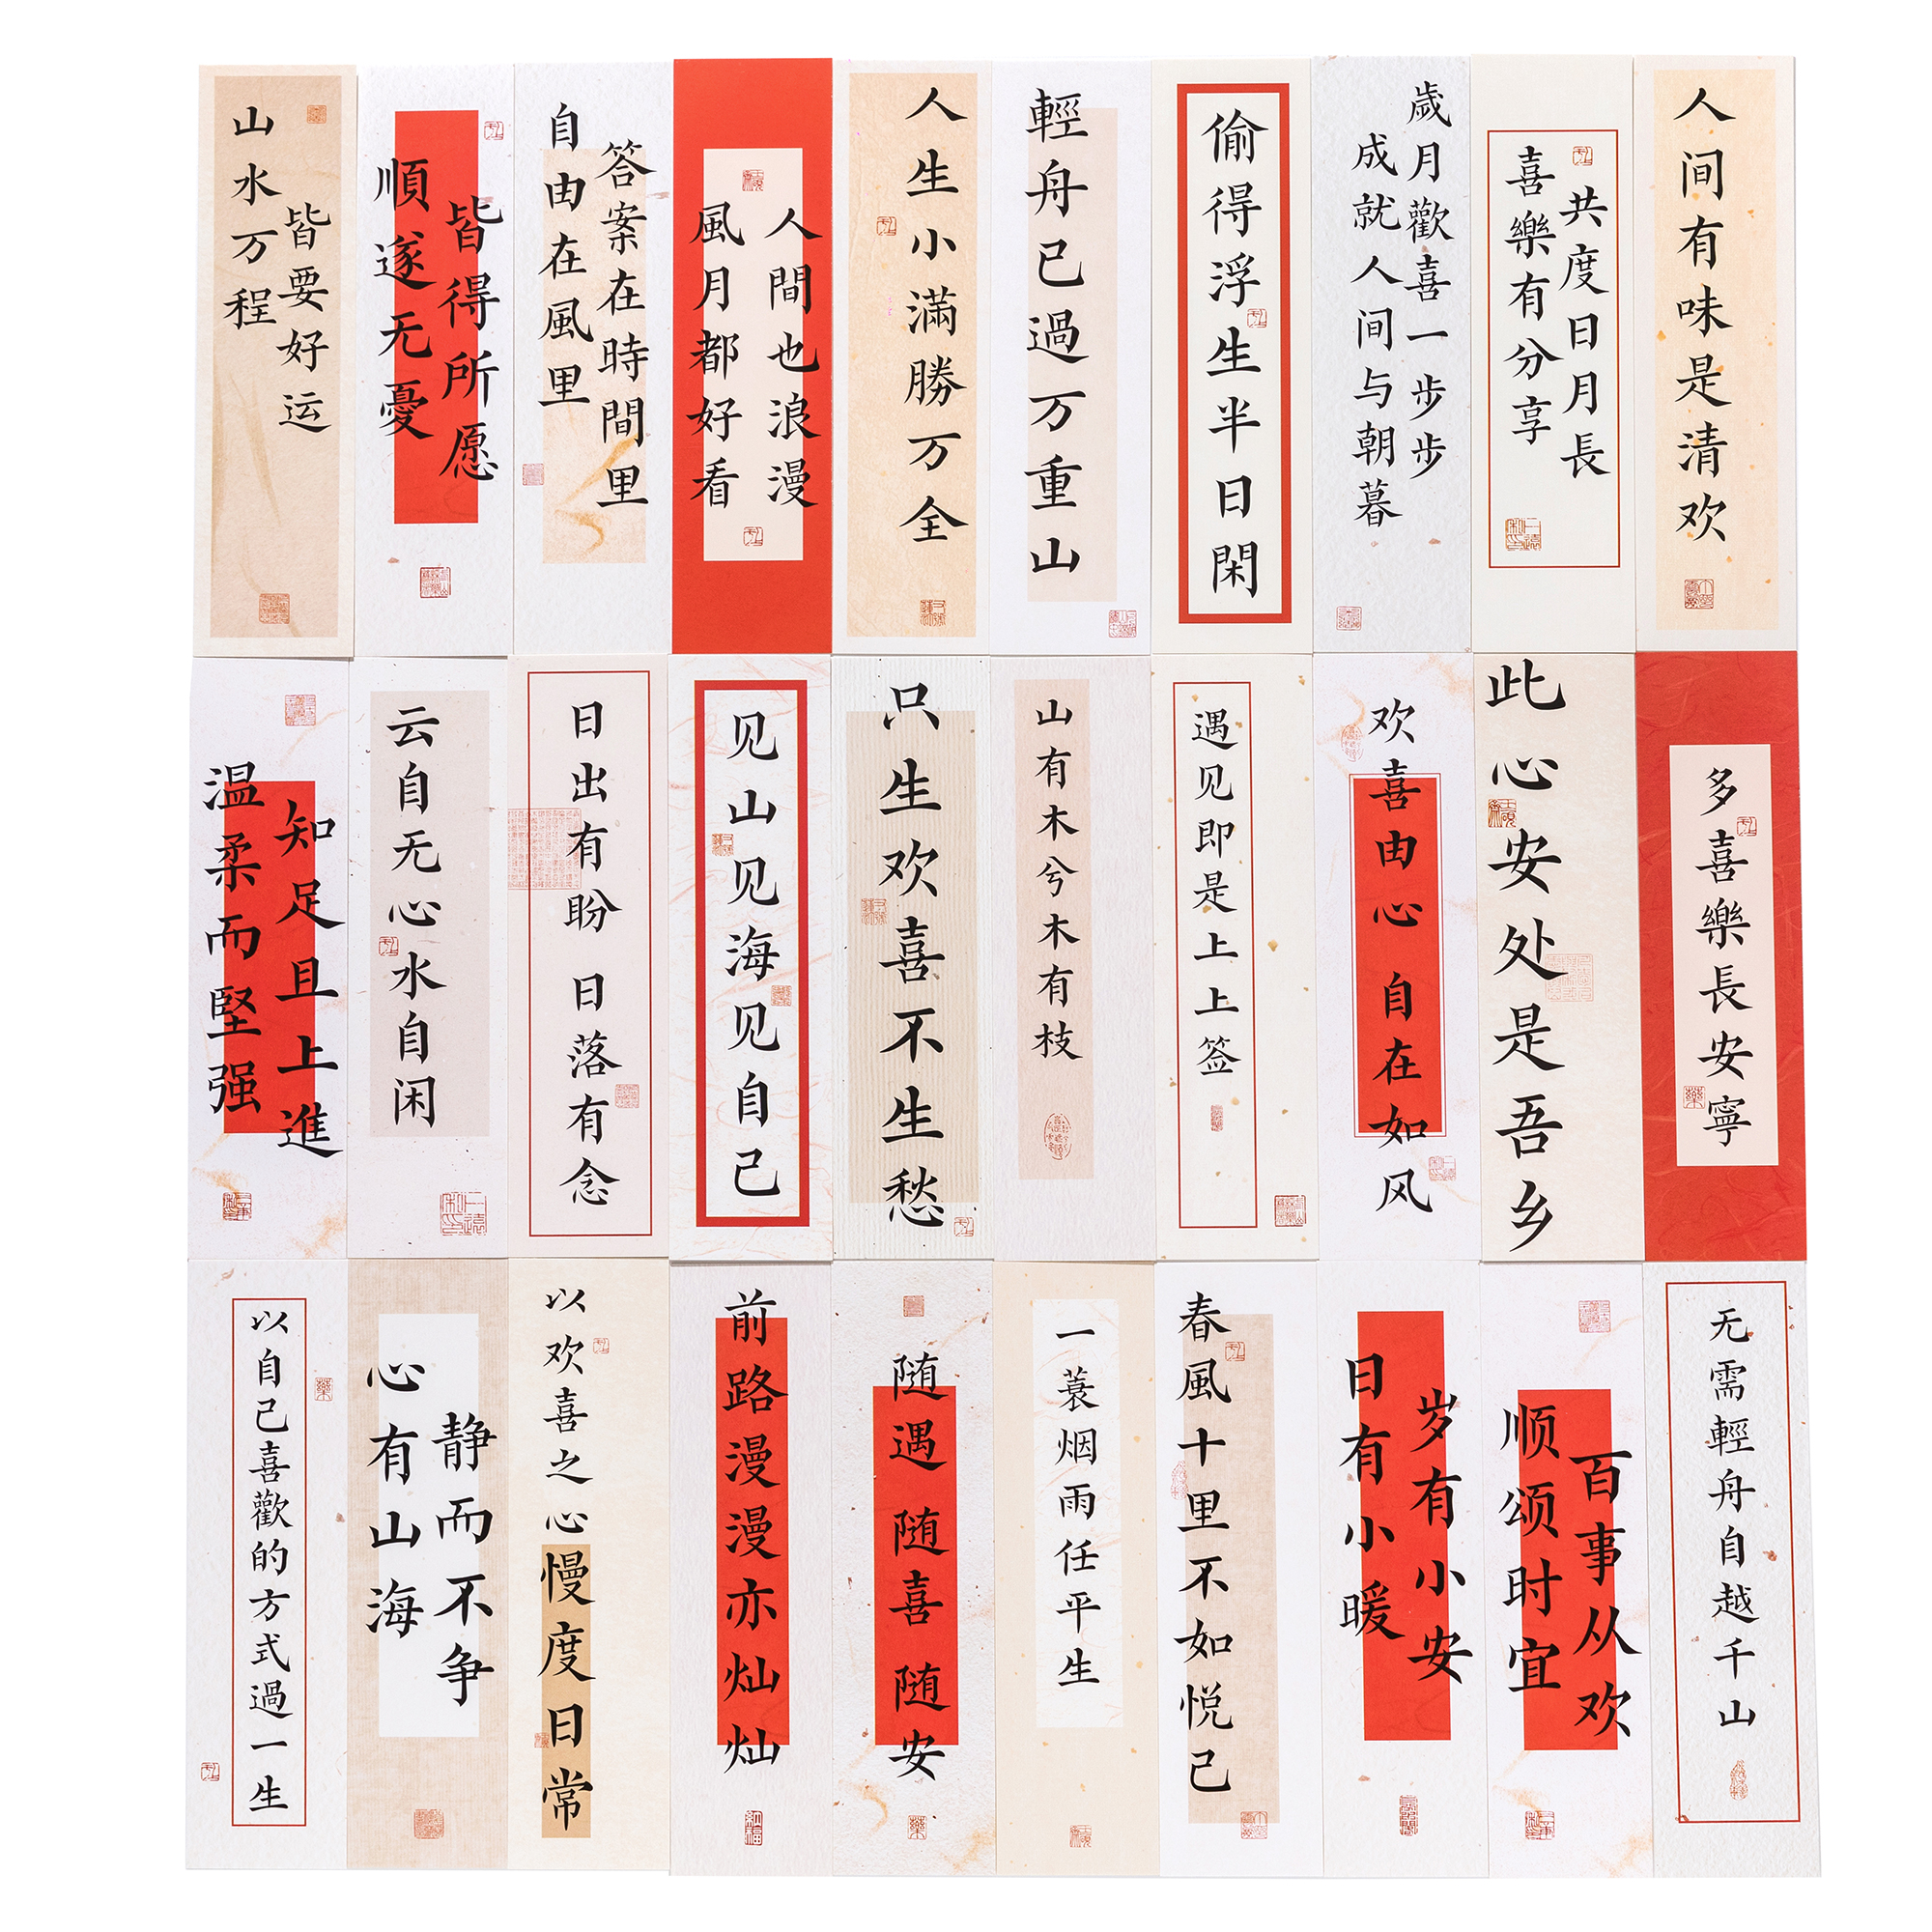 山水万程
皆要好运
順遂无憂
皆得所愿
自由在風里
答案在時間里
風月都好看
人間也浪漫
人生小滿勝万全
輕舟已過万重山
偷得浮生半日閑
歲月歡喜一步步
成就人间与朝暮
喜樂有分享
共度日月長
人间有味是清欢
温柔而堅强
知足且上進
云自无心水自闲
日出有盼 日落有念
见山见海见自己
只生欢喜不生愁
山有木兮木有枝
遇见即是上上签
欢喜由心 自在如风
此心安处是吾乡
多喜樂長安寧
以自己喜歡的方式過一生
心有山海
静而不争
以欢喜之心慢度日常
前路漫漫亦灿灿
随遇 随喜 随安
一蓑烟雨任平生
春風十里不如悦己
日有小暖
岁有小安
顺颂时宜
百事从欢
无需輕舟自越千山